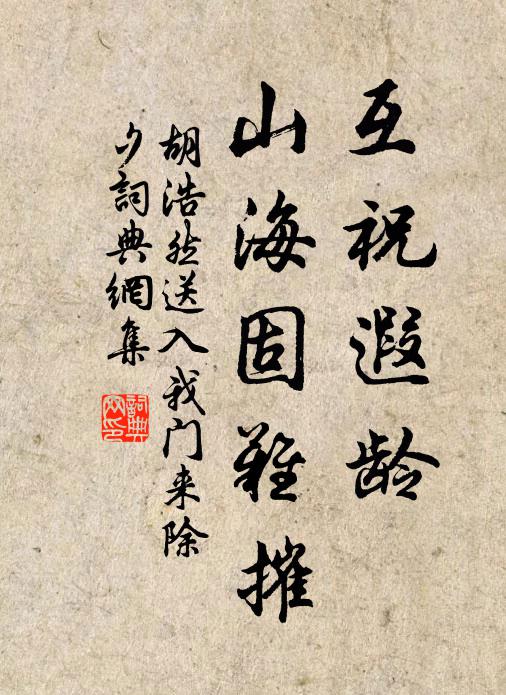 互祝遐龄
山海固难摧
胡浩然送入我门来除
夕詞典網集
詞典
网印